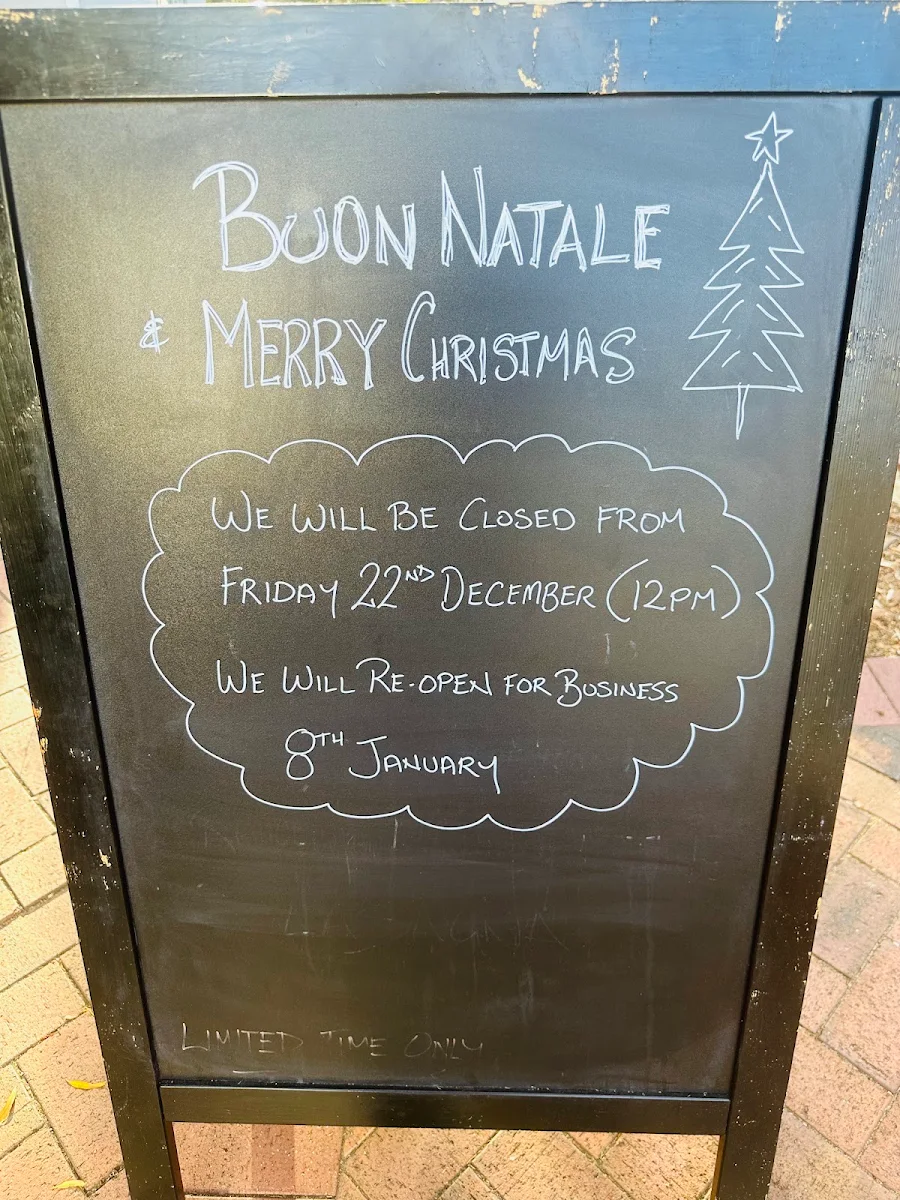 BUON NATALE
& MERRY CHRISTMAS
WE WILL BE CLOSED FROM
FRIDAY 22ND DECEMBER (12PM)
WE WILL RE-OPEN FOR BUSINESS
8TH JANUARY
LIMITED TIME ONLY